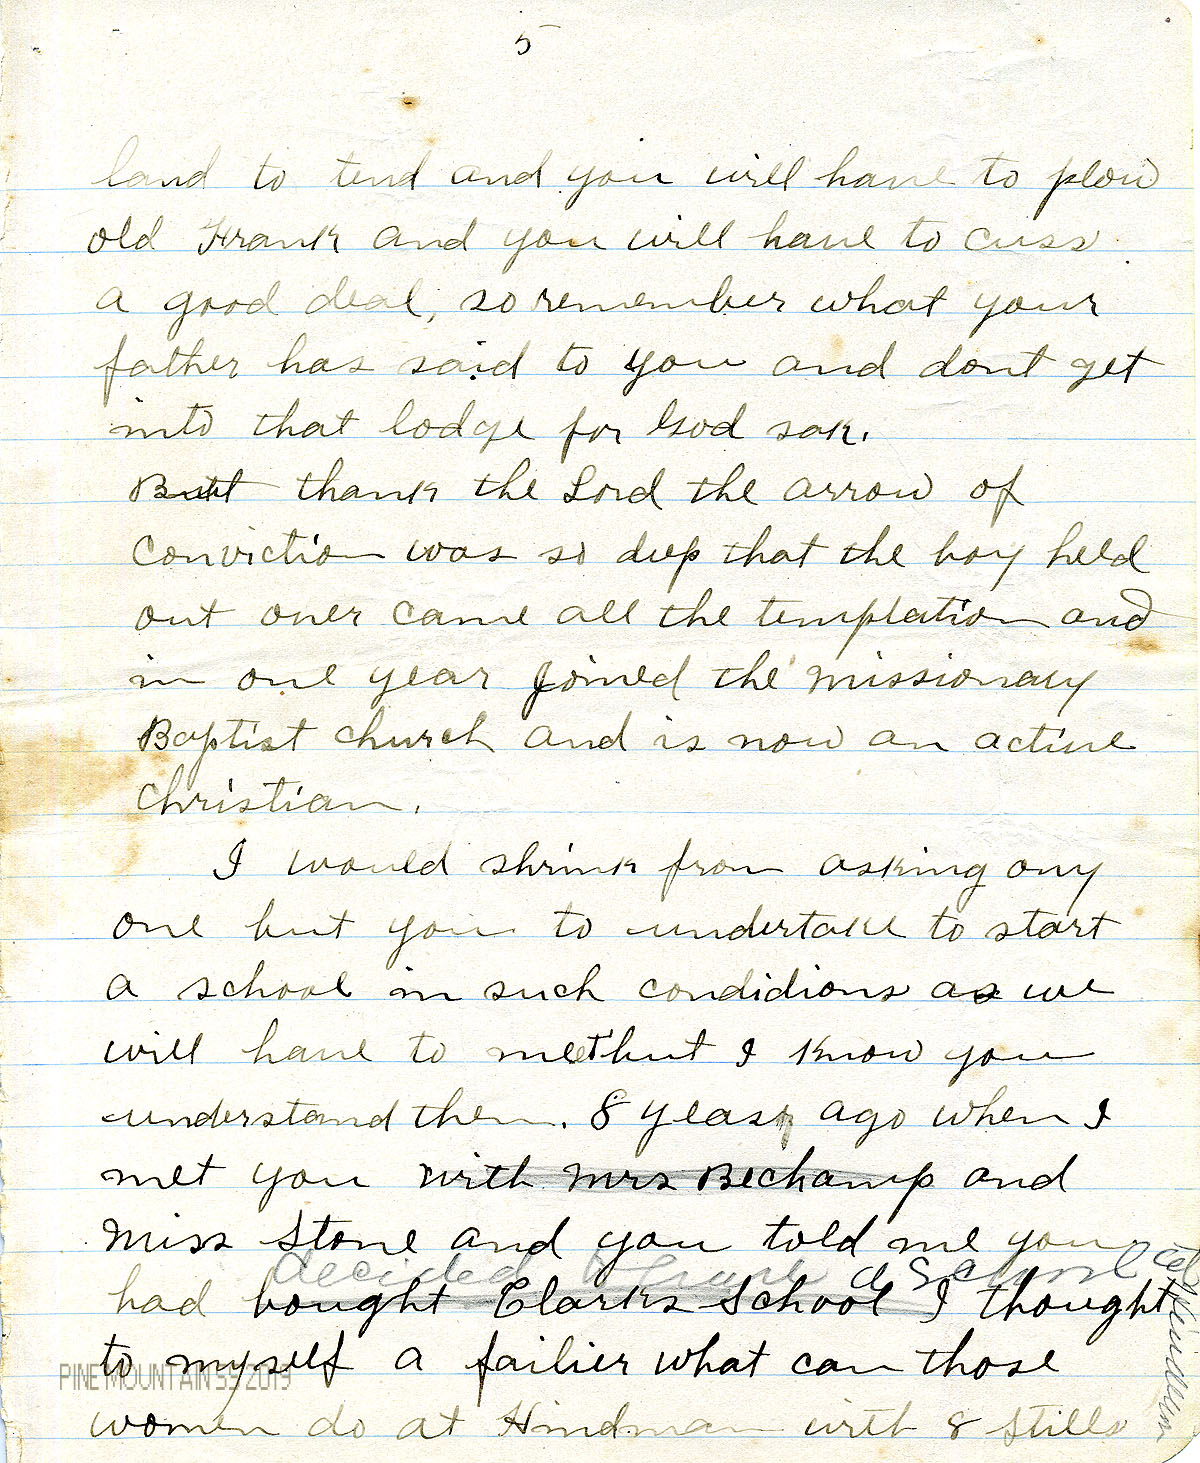 5
land to tend and you will have to plow
old Frank and you will have to cuss
a good deal, so remember what your
father has said to you and dont get
into that lodge for God sak.
But thank the Lord the arrow of
Conviction was so deep that the boy held
out over came all the templation and
in one year Joined the Missionary
Baptist church and is now an active
Christian.
I would shrink from asking any
one but you to undertake to start
a school in such condidions as we
will have to meet but I know you
understand them. 8 years ago when I
met you with Mrs Bechamp and
Miss Stone and you told me you
decided to have a School at Hindman
had bought Clarks School I thought
to myself a failier what can those
women do at Hindman with 8 Stills
PINE MOUNTAIN SS 2019